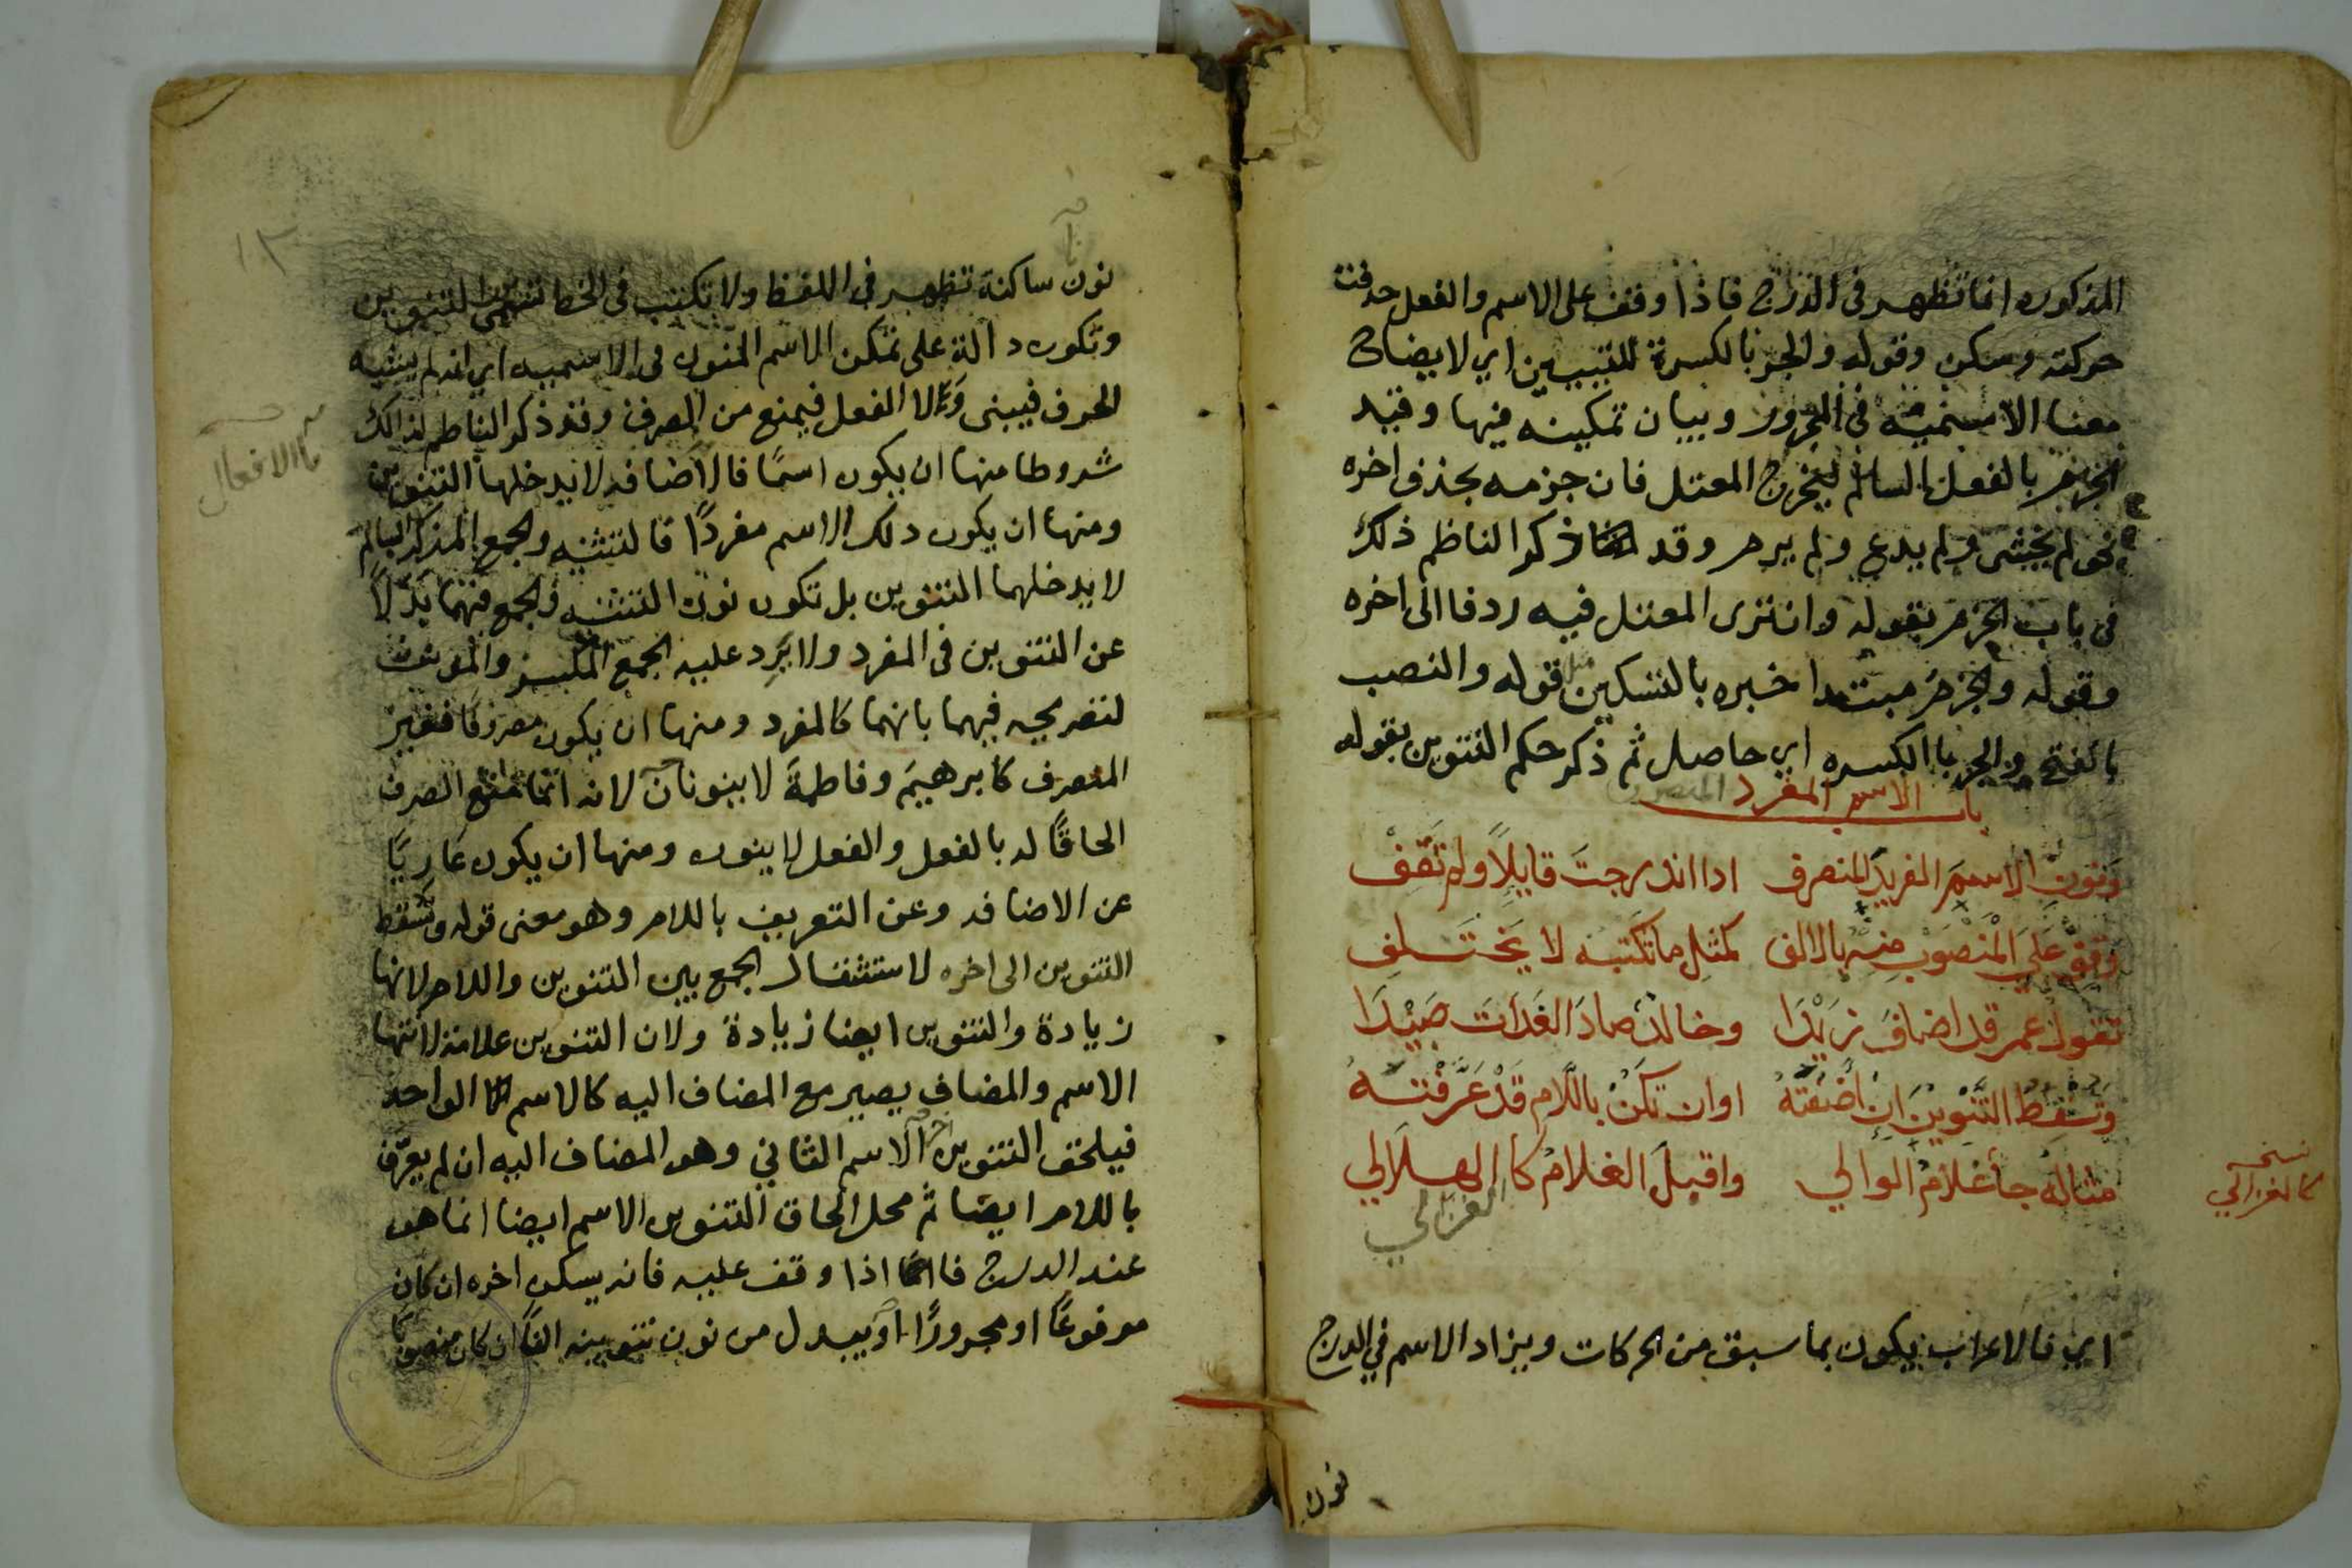 المذكوره انما تظهر في الدرج فاذا وقف على الاسم والفعل حذفت
حركته وسكن وقوله والجر بالكسرة للتبيين اي لايضاح
معنا الاسميه في المجرور وبيان تمكينه فيها وقيد
الجزم بالفعل السالم ليخرج المعتل فان جزمه بحذف اخره
نحو لم يخش ولم يدع ولم يرم وقد ذكر الناظم ذلك
في باب الجزم بقوله وان ترى المعتل فيه ردفا الى اخره
وقوله والجزم مبتدا خبره بالتسكين مثل قوله والنصب
بالفتح والجر باالكسره اي حاصل ثم ذكر حكم التنوين بقوله
باب الاسم المفرد المنصرف
ونون الاسم الفريد المنصرف اذا اندرجت قايلا ولم تقف
وقف على المنصوب منه بالالف كمثل ما تكتبه لا يختلف
تقول عمر قد اضاف زيدا وخالد صاد الغدات صيدا
وتسقط التنوين ان أضفته او ان تكن باللام قد عرفته
مثاله جأ غلام الوالي واقبل الغلام كا الهلالي
الغزالي
نسخه
كالغزالي
اي فالاعراب يكون بما سبق من الحركات ويزاد الاسم في الدرج
نون
١٣
نون ساكنة تظهر في اللفظ ولا تكتب في الخط تسمى التنوين
وتكون دالة على تمكن الاسم المنون في الاسميه اي انه لم يشبه
الحرف فيبنى ولا الفعل فيمنع من الصرف وقد ذكر الناظم لذالك
شروطا منها ان يكون اسمًا فالاضافه لا يدخلها التنوين
الافعال
ومنها ان يكون ذلك الاسم مفردًا فالتثنيه والجمع المذكر السالم
لا يدخلهما التنوين بل تكون نون التثنيه والجمع فيهما بدلاً
عن التنوين في المفرد ولا يرد عليه الجمع المكسر والمونث
لتصريحه فيهما بانهما كالمفرد ومنها ان يكون مصروفًا فغير
المنصرف كابرهيم وفاطمة لا ينونان لانه انما منع الصرف
الحاقًا له بالفعل والفعل لا ينون ومنها ان يكون عاريًا
عن الاضافه وعن التعريف باللام وهو معنى قوله وتسقط
التنوين الى اخره لاستثقال الجمع بين التنوين واللام لانها
زيادة والتنوين ايضا زيادة ولان التنوين علامة لانتها
الاسم والمضاف يصير مع المضاف اليه كالاسم الواحد
فيلحق التنوين اخر الاسم الثاني وهو المضاف اليه ان لم يعرّف
باللام ايضا ثم محل الحاق التنوين الاسم ايضا انما هو
عند الدرج فااما اذا وقف عليه فانه يسكن اخره ان كان
مرفوعًا او مجرورًا او يبدل من نون تنوينه الفًا ان كان منصوبًا